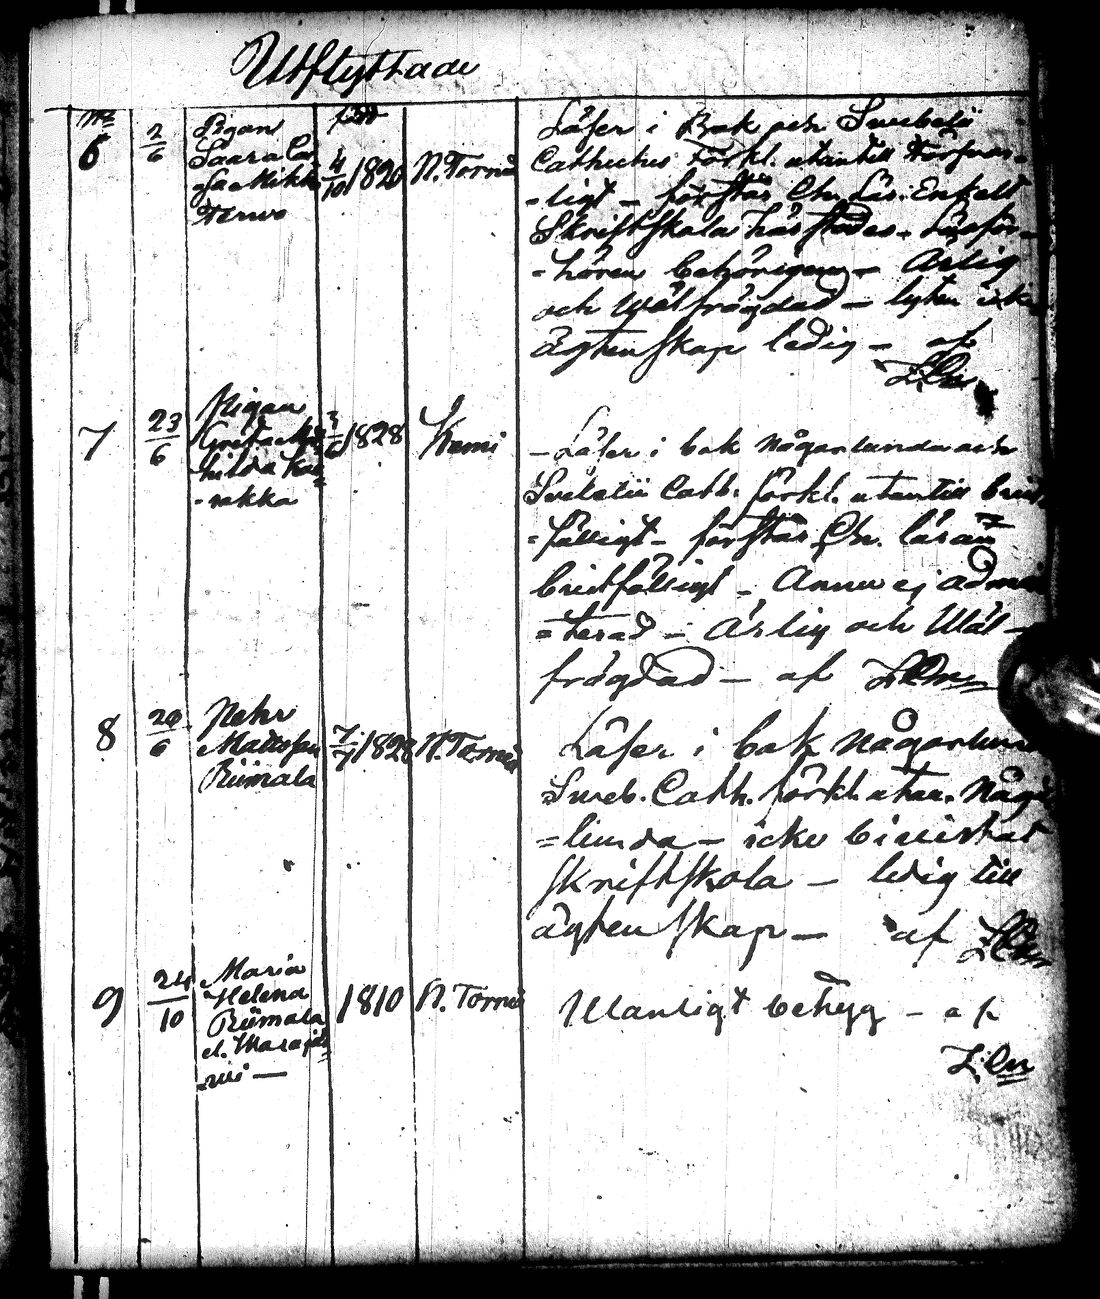 Utflyttade
No
född
6
2/6
Pigan
Saara Cai
-sa Mikk
Terwo
4/10 1820
N. Torneå
Läser i Bok och Swebelii
Catheches Förkl. utantill Förswar-
-ligt - förstår Chr. Lär. Enkelt
Skriftskola härstädes - Läsför-
-hören behörigen - Ärlig
och Wälfrägdad - lyten icke
ägtenskap ledig - af
7
23/6
Pigan
Greta Ma
hilda Ku
-rakka
1828
Kemi
- Läser i bok någorlunda och
Swebelii Cath. förkl. utantill brist
-fälligt - förstår Chr. läran
bristfälligt - Ännu ej admit
-terad - Ärlig och Wäl-
frägdad - af
8
20/6
Pehr
Mattsson
Riimala
7/7 1828
N. Torneå
Läser i bok någorlunda
Sweb. Cath. förkl. utan. någo
-lunda - icke bewistat
skriftskola - ledig till
ägtenskap - af
9
24/10
Maria
Helena
Riimala
el.
1810
N. Torneå
Wanligt betyg - af